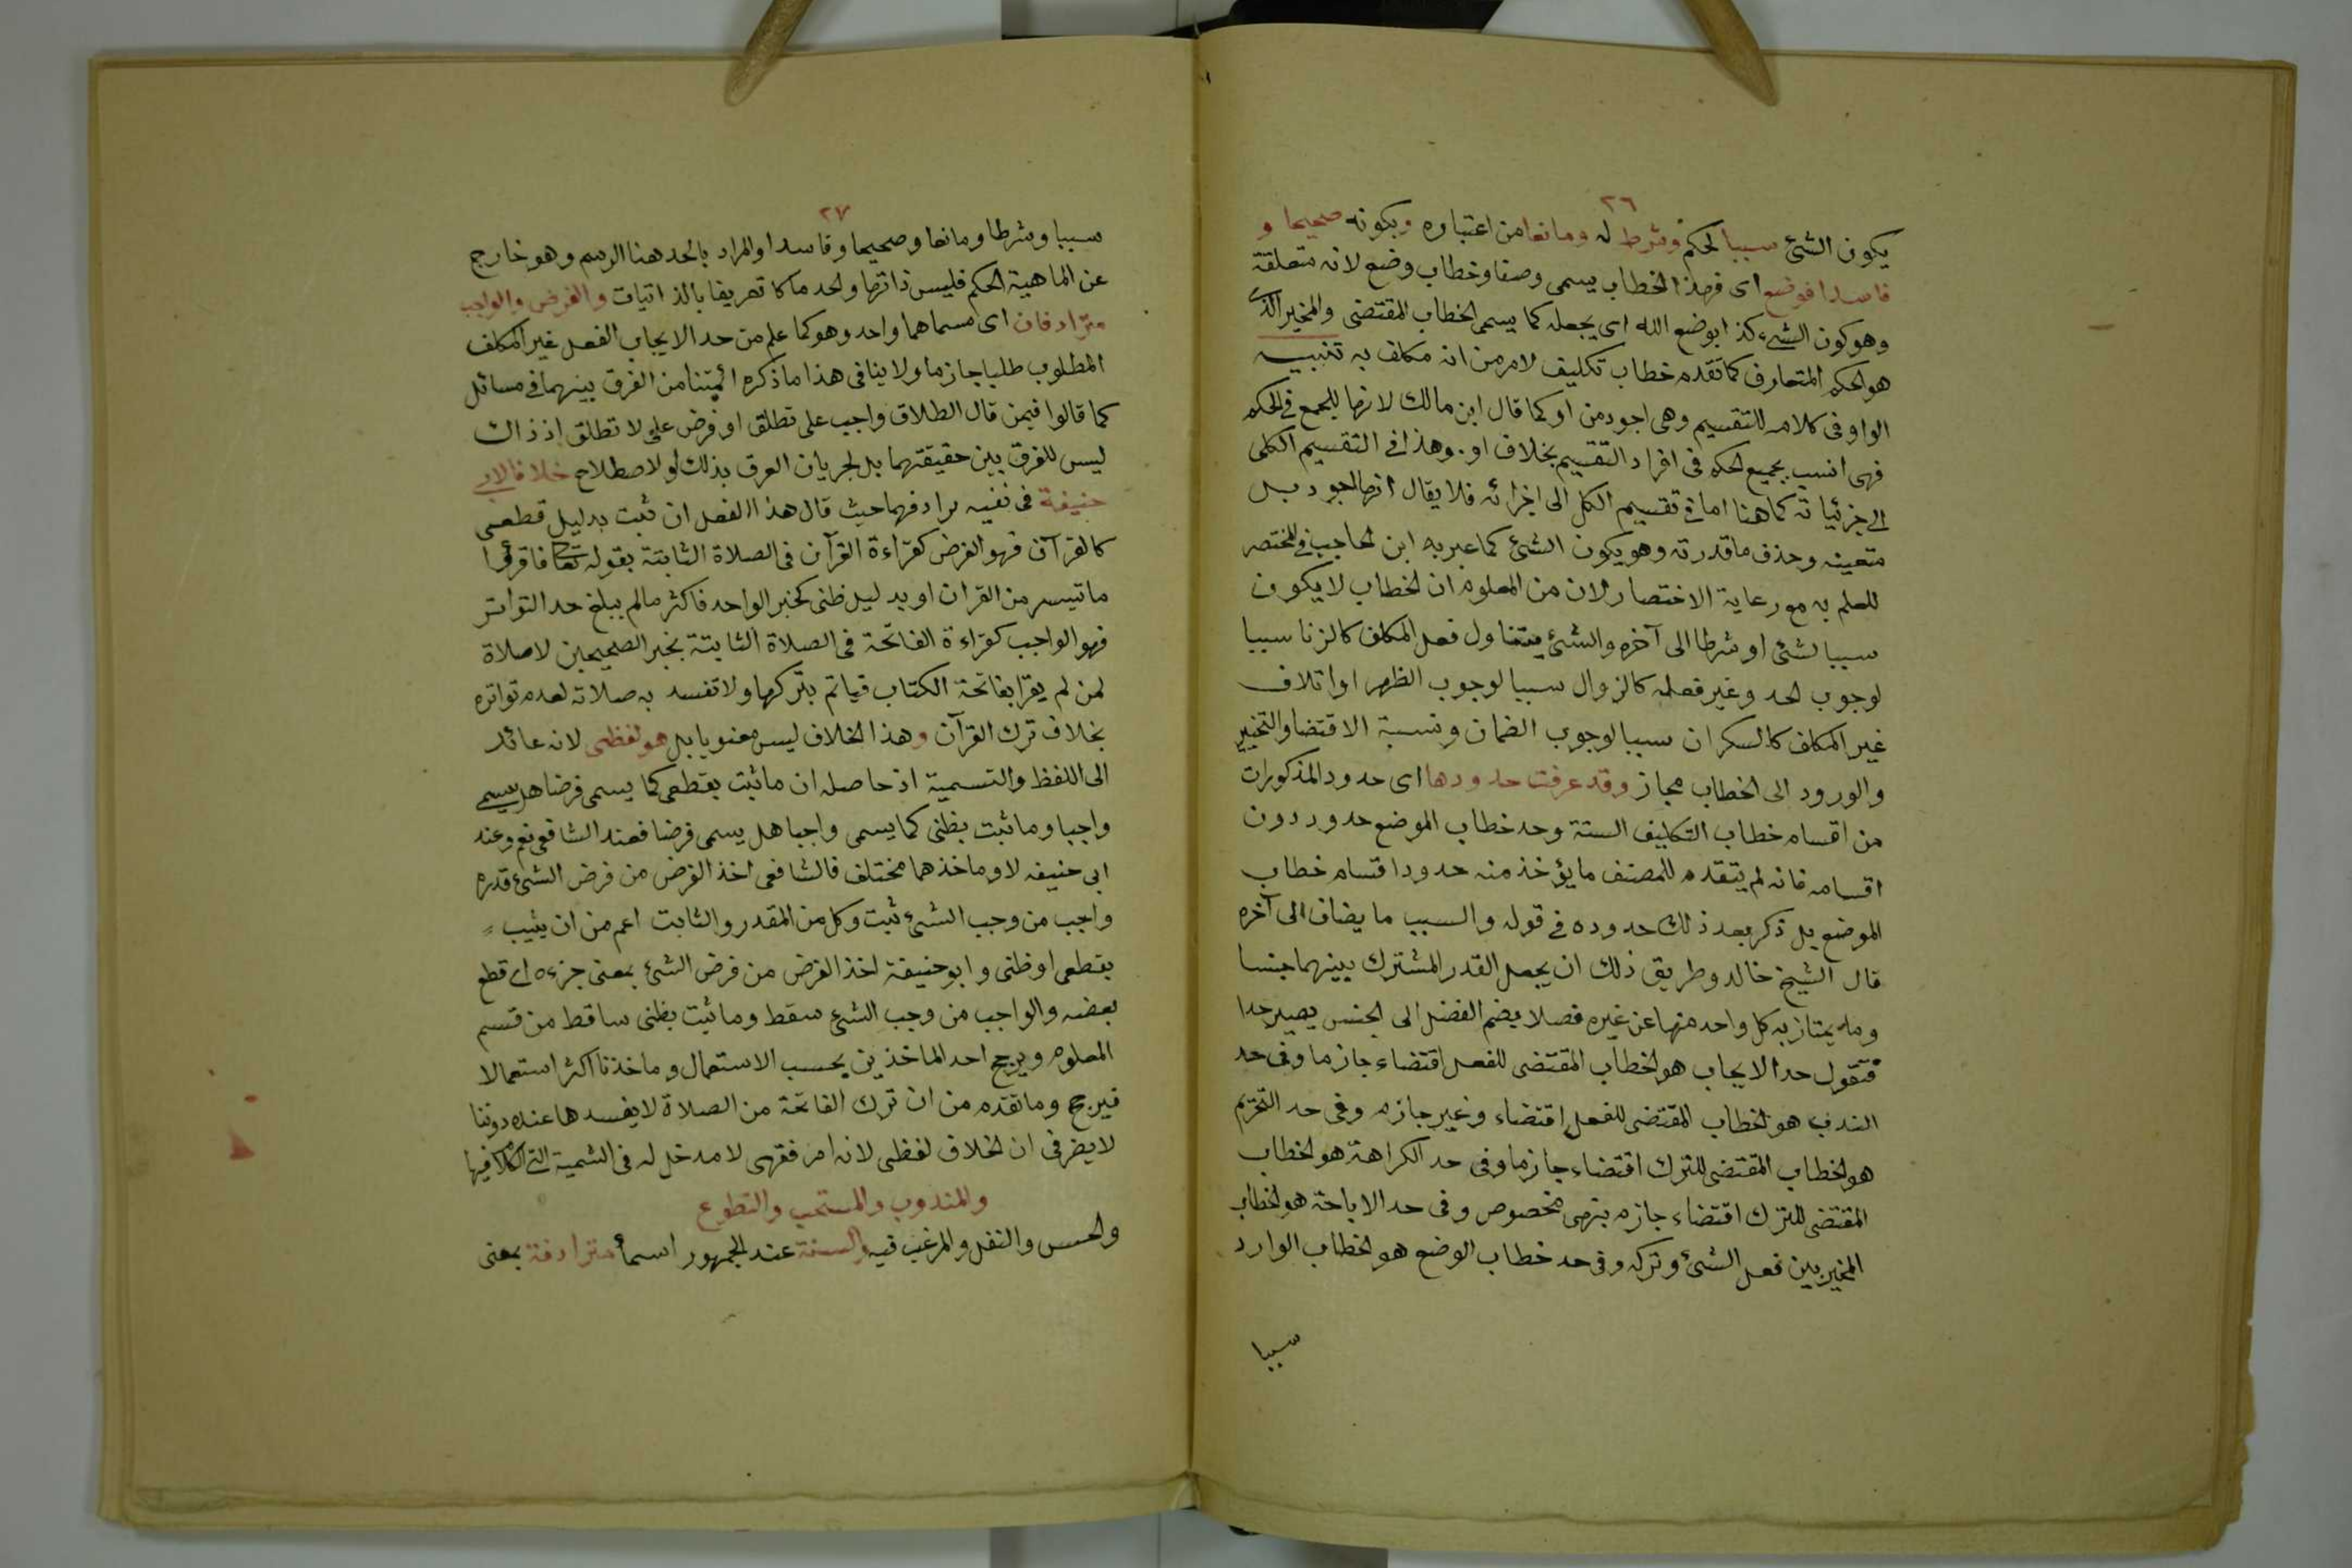 ٢٦
يكون الشئ سببا لحكم وشرط له ومانعا من اعتباره وبكونه صحيحا و
فاسدا فوضع اى فهذا الخطاب يسمى وصفا وخطاب وضع لانه متعلقة
وهو كون الشيء كذا بوضع الله اى بجعله كما يسمى الخطاب المقتضى والمخير الذى
هو الحكم المتعارف كما تقدم خطاب تكليف لامر من انه مكلف به تنبيه
الواو فى كلامه للتقسيم وهى اجود من او كما قال ابن مالك لانها للجمع فى الحكم
فهى انسب بجميع الحكم فى افراد التقسيم بخلاف او. وهذا فى التقسيم الكلى
الى جزئياته كما هنا اما فى تقسيم الكل الى اجزائه فلا يقال انها الجود بل
متعينه وحذف ما قدرته وهو يكون الشئ كما عبر به ابن الحاجب فى المختصر
للعلم به مع رعاية الاختصار لان من المعلوم ان الخطاب لا يكون
سببا لشئ او شرطا الى آخره والشئ يتناول فعل المكلف كالزنا سببا
لوجوب الحد وغير فعله كالزوال سببا لوجوب الظهر او اتلاف
غير المكلف كالسكران سببا لوجوب الضمان ونسبة الاقتضا والتخيير
والورود الى الخطاب مجاز وقد عرفت حدودها اى حدود المذكورات
من اقسام خطاب التكليف الستة وحد خطاب الموضع حدود دون
اقسامه فانه لم يتقدم للمصنف ما يؤخذ منه حدود اقسام خطاب
الموضع بل ذكر بعد ذلك حدوده فى قوله والسبب ما يضاف الى آخره
قال الشيخ خالد وطريق ذلك ان يجعل القدر المشترك بينهما جنسا
وما يمتاز به كل واحد منها عن غيره فصلا يضم الفضل الى الجنس يصير حدا
فتقول حد الايجاب هو الخطاب المقتضى للفعل اقتضاء جازما وفى حد
الندب هو الخطاب المقتضى للفعل اقتضاء وغير جازم وفى حد التحريم
هو الخطاب المقتضى للترك اقتضاء جازما وفى حد الكراهة هو الخطاب
المقتضى للترك اقتضاء جازم بنهى مخصوص وفى حد الاباحة هو الخطاب
المخير بين فعل الشئ وتركه وفى حد خطاب الوضع هو الخطاب الوارد
سببا
٢٧
سببا وشرطا ومانعا وصحيحا وفاسدا والمراد بالحد هنا الرسم وهو خارج
عن الماهية الحكم فليس ذاتها والحد ما كا تعريفا بالذاتيات والفرض والواجب
مترادفان اى مسماهما واحد وهو كما علم من حد الايجاب الفعل غير المكلف
المطلوب طلبا جازما ولا ينافى هذا ما ذكره ائمتنا من الفرق بينهما فى مسائل
كما قالوا فيمن قال الطلاق واجب على تطلق او فرض على لا تطلق اذ ذاك
ليس للفرق بين حقيقتهما بل لجريان العرف بذلك او لاصطلاح خلافا لابى
حنيفة فى نفيه ترادفهما حيث قال هذا الفعل ان ثبت بدليل قطعى
كالقرآن فهو الفرض كقراءة القرآن فى الصلاة الثابتة بقوله تعالى فاقرؤا
ما تيسر من القران او بدليل ظنى كخبر الواحد فاكثر ما لم يبلغ حد التواتر
فهو الواجب كقراءة الفاتحة فى الصلاة الثابتة بخبر الصحيحين لا صلاة
لمن لم يقرا بفاتحة الكتاب فياتم بتركها ولا تفسد به صلاته لعدم تواتره
بخلاف ترك القرآن وهذا الخلاف ليس معنويا بل هو لفظى لانه عائد
الى اللفظ والتسمية اذ حاصله ان ما ثبت بقطعى كما يسمى فرضا هل يسمى
واجبا وما ثبت بظنى كما يسمى واجبا هل يسمى فرضا فعند الشافعى نعم وعند
ابى حنيفه لا وماخذهما مختلف فالشافعى اخذ الفرض من فرض الشئ قدره
واجب من وجب الشئ ثبت وكل من المقدر والثابت اعم من ان يثيب
بقطعى او ظنى وابو حنيفة اخذ الفرض من فرض الشئ بمعنى جزءه اى قطع
بعضه والواجب من وجب الشئ سقط وما ثبت بظنى ساقط من قسم
المعلوم ويرجح احد الماخذين بحسب الاستعمال وماخذنا اكثر استعمالا
فيرجح وما تقدم من ان ترك الفاتحة من الصلاة لا يفسدها عنده دوننا
لا يضر فى ان الخلاف لفظى لانه امر فقهى لا مدخل له فى التسمية التى الكلام فيها
والمندوب والمستحب والتطوع
والحسن والنفل والمرغب فيه والسنة عند الجمهور اسماء مترادفة بمعنى